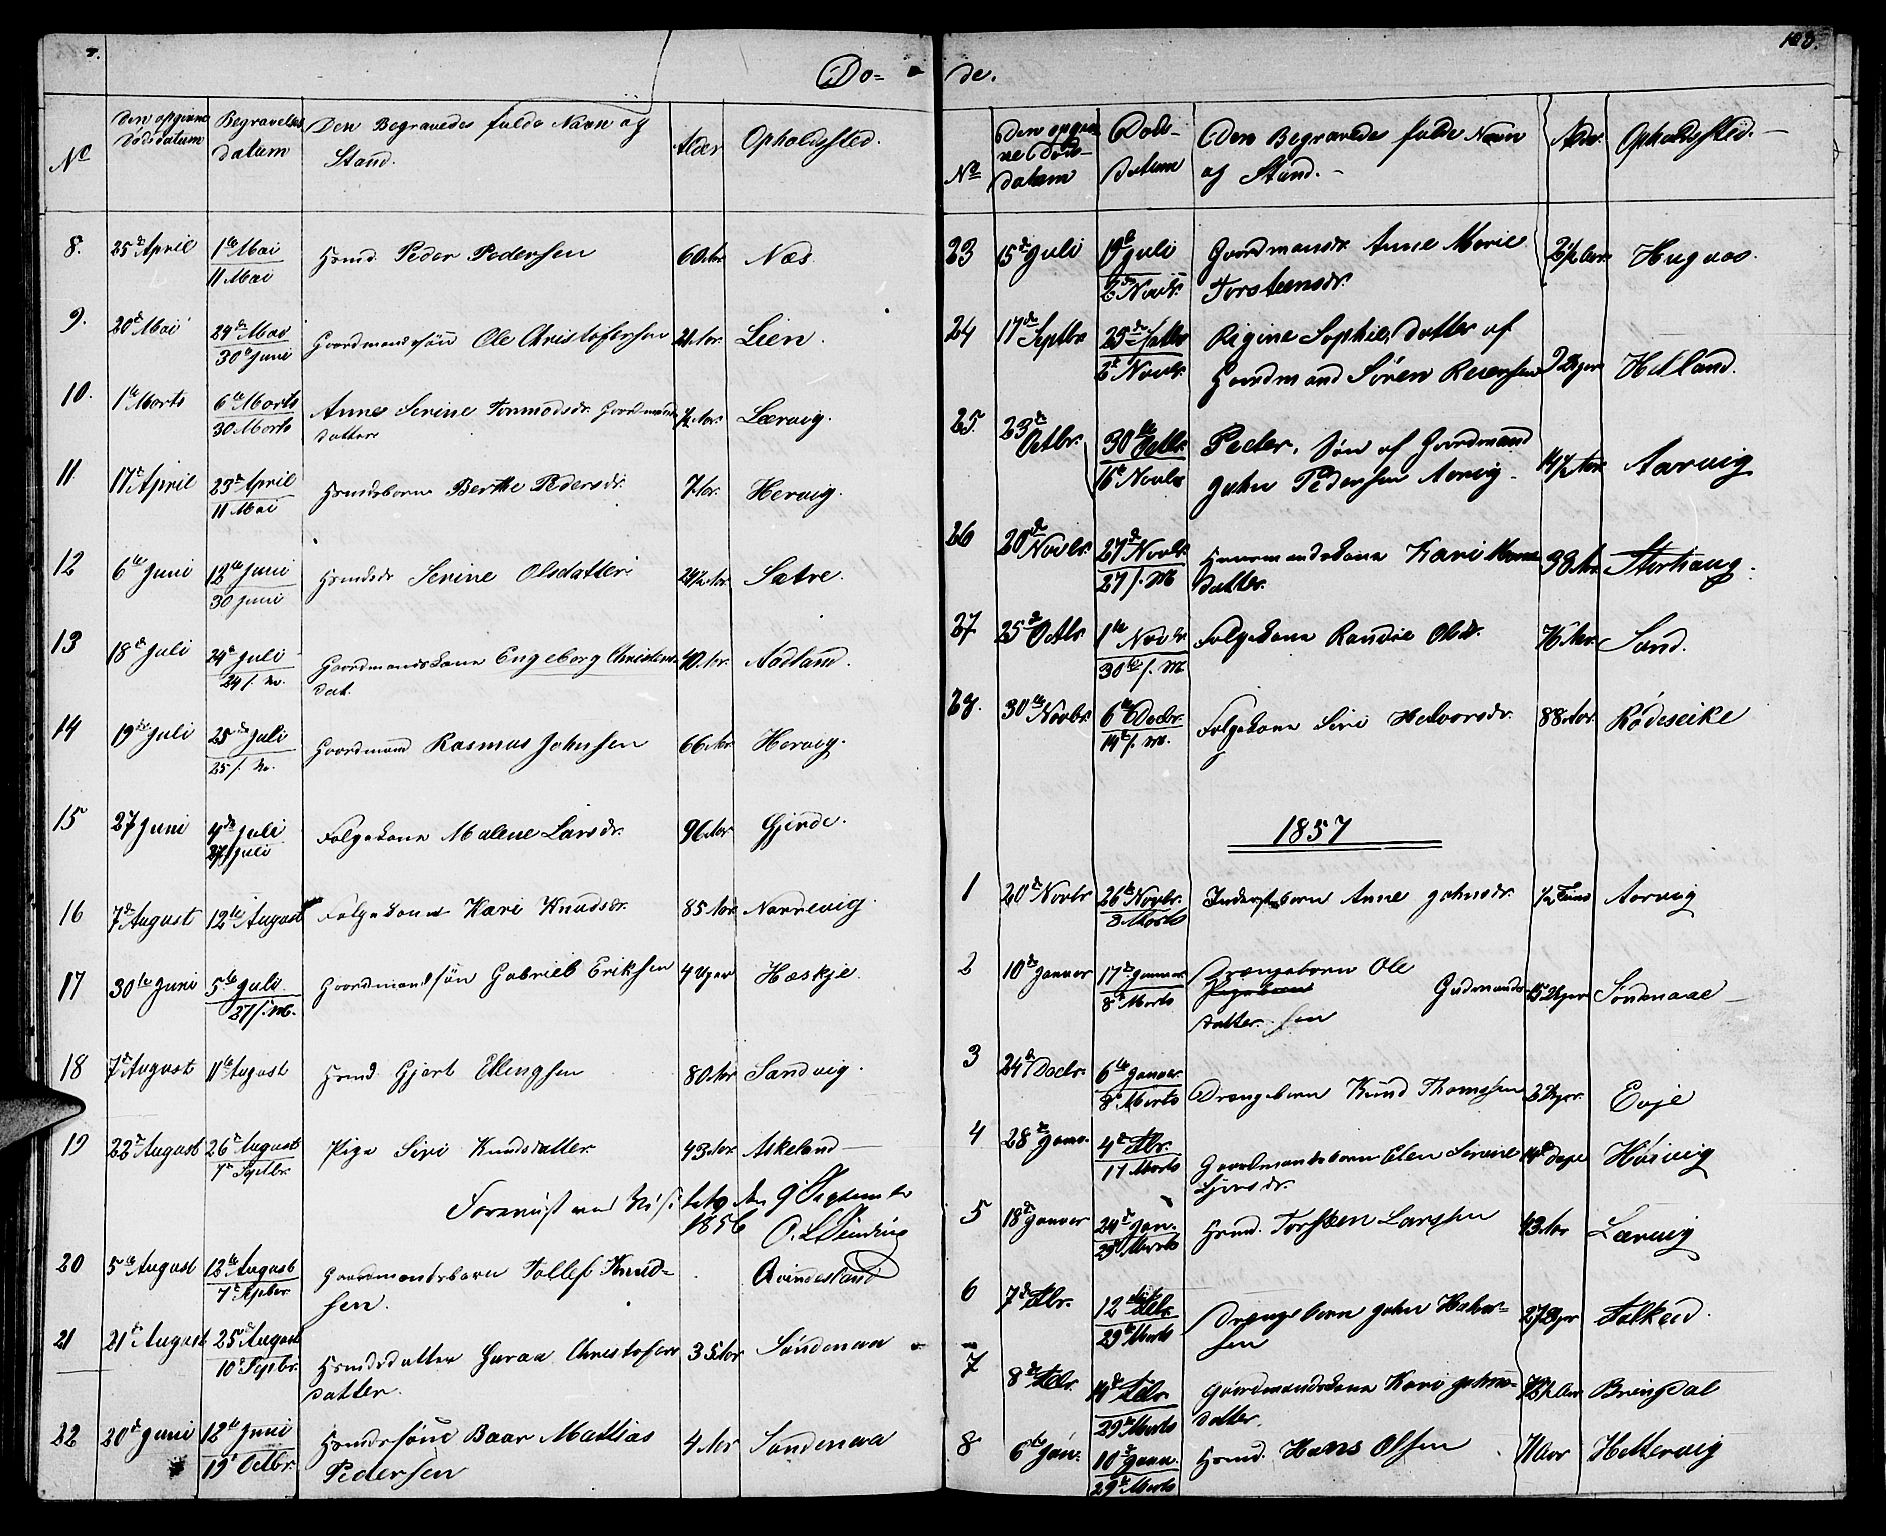 103.
Dö=
de.
No Den opgivne Dødsdatum Begravelses datum Den Begravedes fulde Navn og Stand. Alder Opholdssted.
8. 25de April 1te Mai / 11 Mai Hrmd. Peder Pedersen 60 Aar Næs.
9. 20de Mai 24de Mai / 30te Juni Gaardmandssøn Ole Christofersen Aar. Lien.
10. 1te Marts 6te Marts / 30 Marts Anne Serine Tormodsdr. Gaardmands
datter ½ Aar. Lærvig.
11 17de April 25de April / 11 Mai Hrmdsbarn Berthe Pedersdr. 7 Aar. Hervig.
12 6te Juni 12te Juni / 30 Juni Hrmdsdr Serine Olsdatter. 24½ Aar Satre.
13 18de Juli 24de Juli / 24 f. M. Gaardmandskone Engeborg Christens
dat. 40 Aar. Aadland.
14 19de Juli 25de Juli / 25 f. M. Gaardmand Rasmus Johnsen 66 Aar Hervig.
15 27 Juni 4de Juli / 27 Juli Folgekone Malene Larsdr. 96 Aar Gjerde.
16 7de August 12te August Folgekone Kari Knudsdr. 85 Aar Narrevig.
17 30te Juni 5te Juli / 27 f. M. Gaardmandssøn Gabriel Eriksen 4 Uger Hæskje.
18 7de August 11te August Hrmd. Gjert Ellingsen 80 Aar Sandvig.
19 22de August 26de August / 7de Septbr. Pige Siri Knudsdatter. 43 Aar Askeland
Foreviist ved den 9de September
1856
20 5te August 12te August / 7de Septbr. Gaardmandsbarn Tollef Knud-
sen. Qvindesland
21 21de August 25de August / 10de Septbr. Hrmdsdatter Guraa Christofers
datter. 35 Aar Søndenaa
22 20de Juni 12te Juni / 19de Octbr. Hrmdssøn Baar Mathias
Pedersen 4 Aar Søndenaa
No Den opgivne Døds-datum Døds-datum Den Begravedes fulde Navn og Stand. Alder. Opholdssted.
23 15de Juli 19de Juli / 2den Novbr. Gaardmandsdr. Anne Marie
Torsteensdr. 2½ Aar. Hugaas.
24 17de Septbr. 25de Septbr / 2de Novbr. Rigine Sophie, datter af
Gaardmand Søren Reiersen 9 Uger Helland.
25. 23de Octbr. 30te Octbr. / 6te Novbr Peder, Søn af Gaardmand
John Pedersen Aarvig. 14½ Aar Aarvig
26 20de Novbr. 27de Novbr. / 27 f. M Huusmandskone Kari
datter. 38 Aar. Storhaug.
27 25de Octbr 1te Novbr. / 30te f. M. Folgekone Randie Olsdr. 76 Aar. Sand.
28. 30te Novbr. 6te Decbr. / 14de f. M. Folgekone Siri Halvorsdr. 88 Aar. Rødeseike
1857
1 20de Novbr 26de Novbr. / 8 Marts Inderstbarn Anne Johnsdr. ½ Time Aarvig
2 10de Januar 17de Januar. / 8de Marts Drengebarn Ole Gudmunds
datter sen 15 Uger Søndenaae
3 24de Decbr. 6te Januar. / 8de Marts Drengebarn Knud Thomsen 2 Uger. Evje
4 28de Janr. 4de Febr. / 17 Marts Gaardmandsbarn Elen Serine
14 Dage Høivig
5 18de Januar 24de Jan. / 29 Marts Hrmd. Torsteen Larssen 43 Aar Lærvig
6 7de Febr. 12te Febr. / 29de Marts Drengebarn John Halvor-
sen 27 Uger Falkeid.
7 8de Febr. 14de Febr. / 29de Marts Gaardmandskone Kari Johns-
datter. Bringedal
8 6te Jan. 10de Janr. / 29de Marts Hrmd. Hans Olsen 71 Aar Hettervig